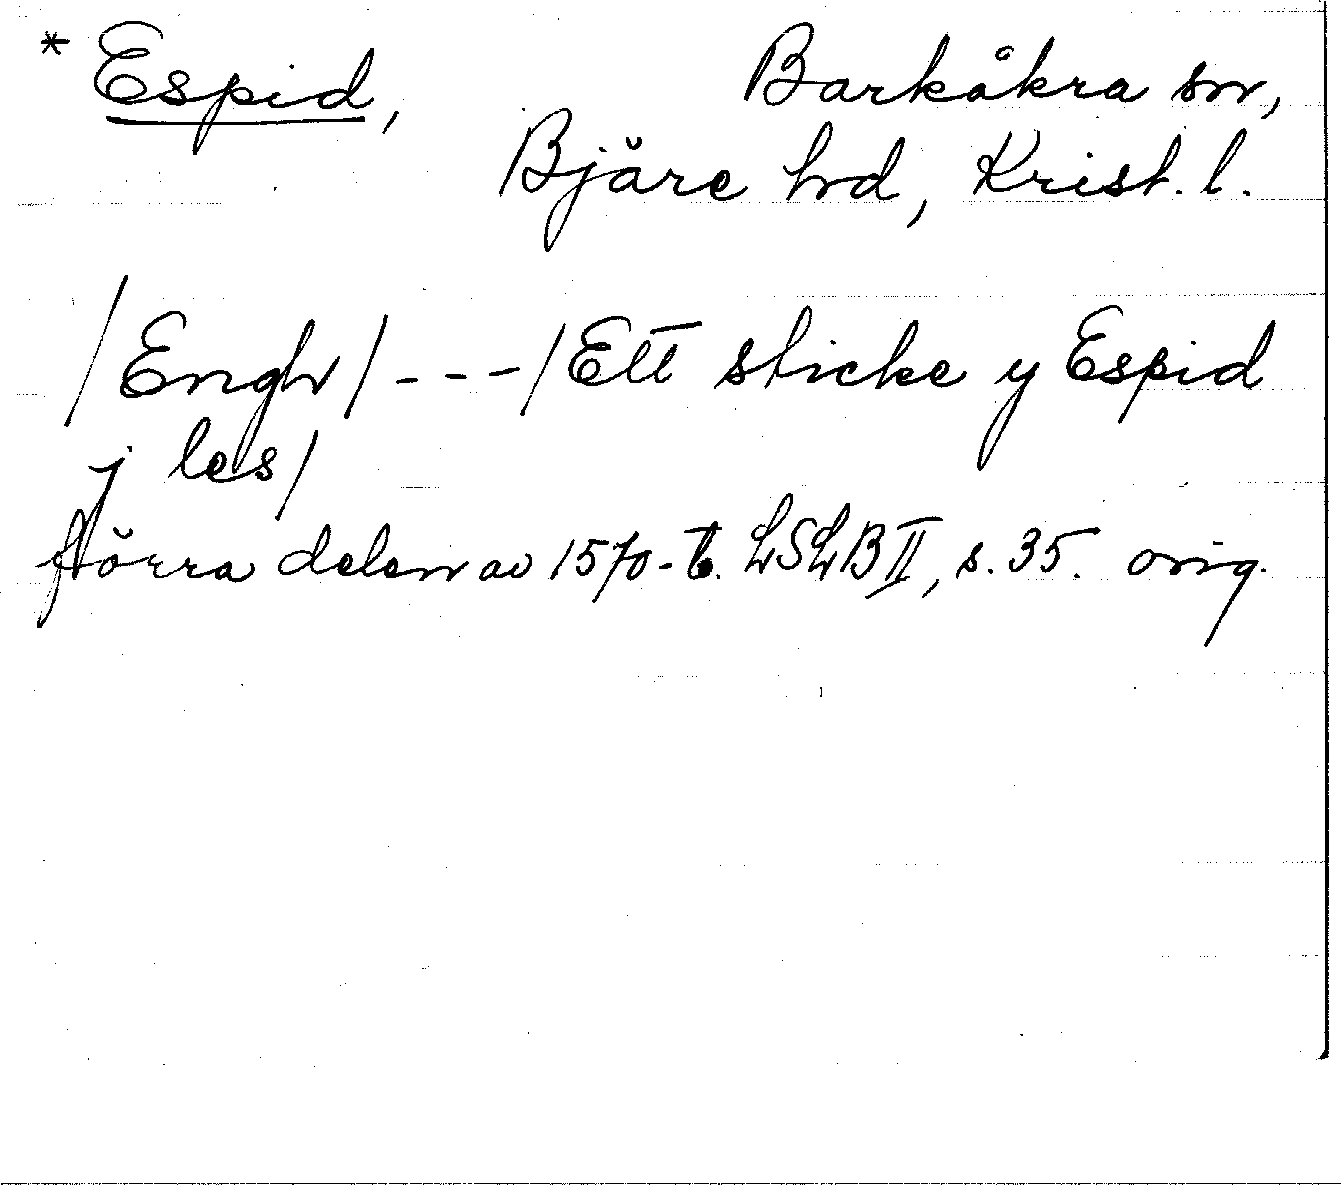 * Espid, Barkåkra sn,
Bjäre hd, Krist. l.
/Engh/ - - - / Ett sticke y Espid
j les/
förra delen av 1570-t. LSLB II, s. 35. orig.